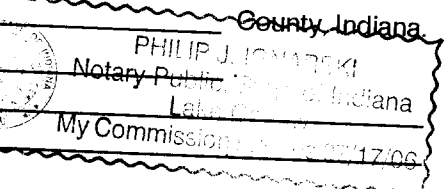 County, Indiana.
PHILIP J.
Notary Public, of Indiana
Lake
My Commission 17/06